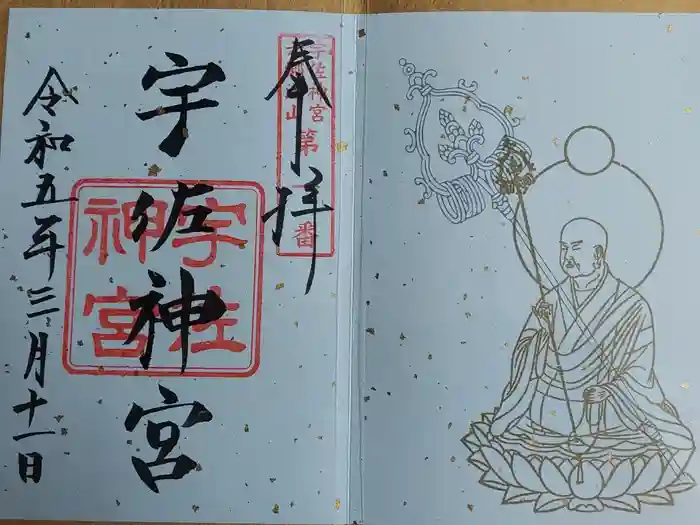 奉拝
宇佐神宮
令和五年三月十一日
宇佐神宮
第
番
宇佐
神宮